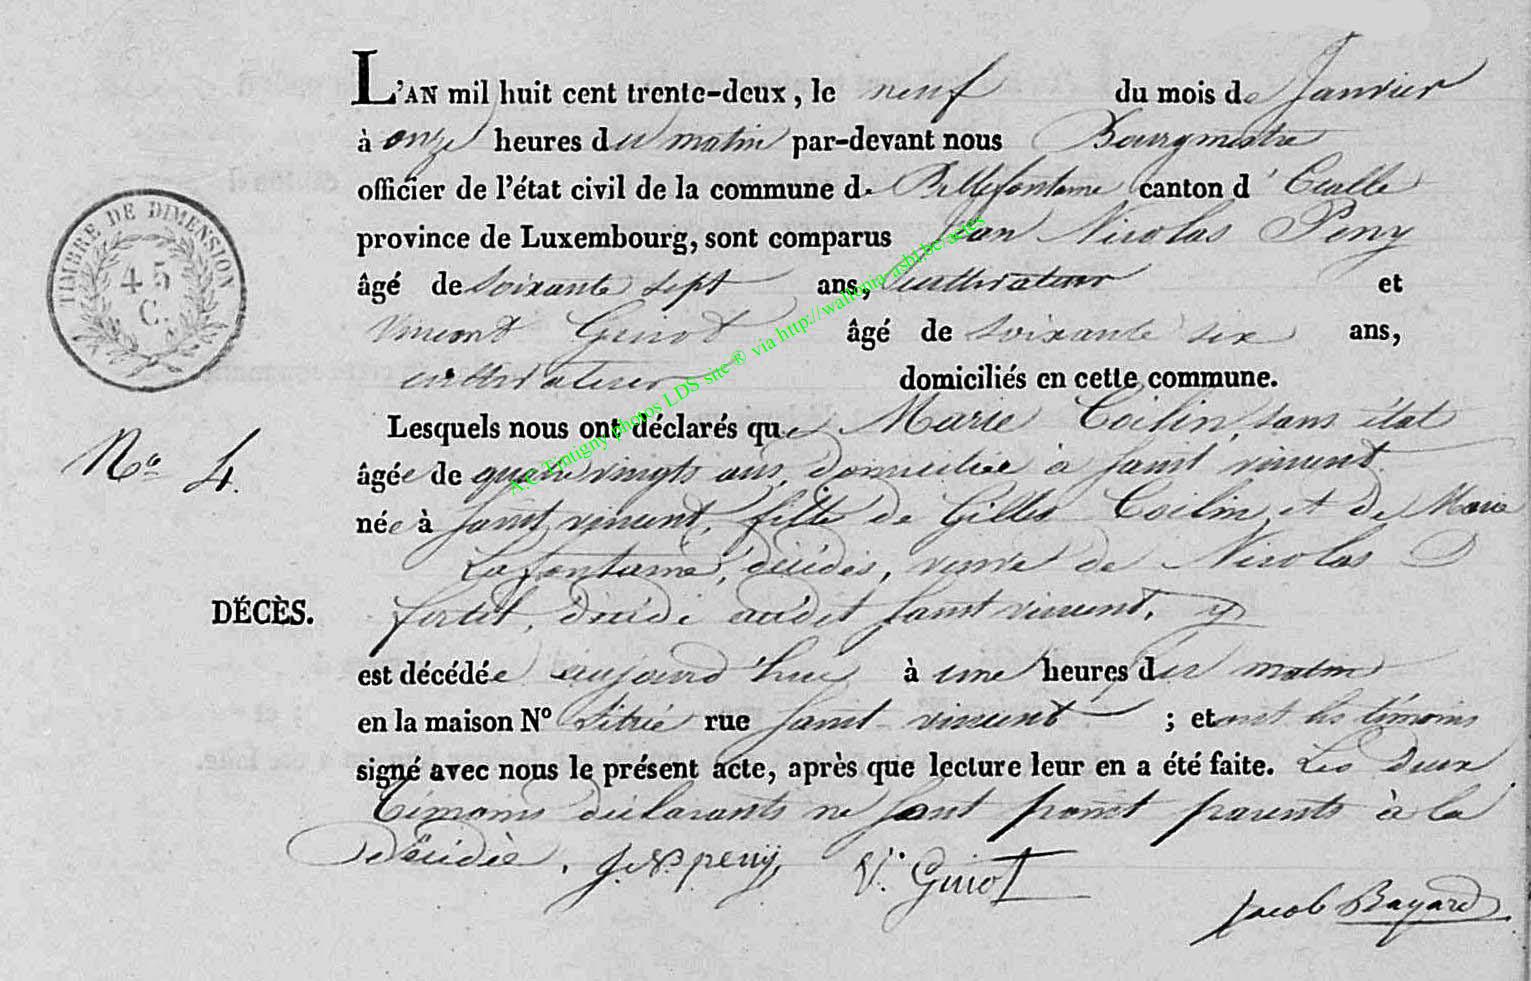 L'AN mil huit cent trente-deux, le neuf du mois de Janvier
à onze heures du matin par-devant nous Bourgmestre
officier de l'état civil de la commune de Bellefontaine canton d' Etalle
province de Luxembourg, sont comparus Jean Nicolas Peny
âgé de soixante sept ans, cultivateur et
Vincent Genot âgé de soixante six ans,
cultivateur domiciliés en cette commune.
Lesquels nous ont déclarés que Marie Coilin, sans état
âgée de quatre vingts ans, domiciliée à saint vincent
née à saint vincent, fille de Gilles Coilin et de Marie
Lafontaine, décédés, veuve de Nicolas
décédé audit saint vincent,
est décédée aujourd'hui à une heures du matin
en la maison Nº située rue saint vincent ; et ont les témoins
signé avec nous le présent acte, après que lecture leur en a été faite. Les deux
témoins déclarants ne sont point parents à la
décédée. J. N. peny V. Guiot
Jacob Bayard
TIMBRE DE DIMENSION
45
C.
No 4.
DÉCÈS.
A.C Tintigny photos LDS site ® via http://wallonia-asbl.be/actes